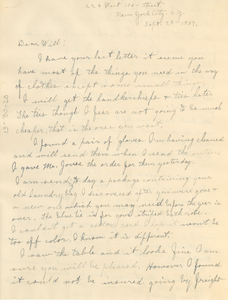 New York City, N.Y.
Dear Will:
I have your last letter it seems you
have most of the things you need in the way
of clothes except some
I will get the handkerchiefs & ties
The ties though I fear are not going to be much
cheaper, that is the one
I found a pair of gloves I'm having cleaned
and will send them when I send the
I gave Mr. the order for them yesterday.
I am send to-day a package containing your
old laundry bag I discovered after you were gone &
new one which you may need before the year is
over. The blue tie is for your striped bath robe.
I couldn't get a
too off color. I know it is different.
I saw the table and it looks fine I am
sure you will be pleased. However I found
it could not be insured going by freight